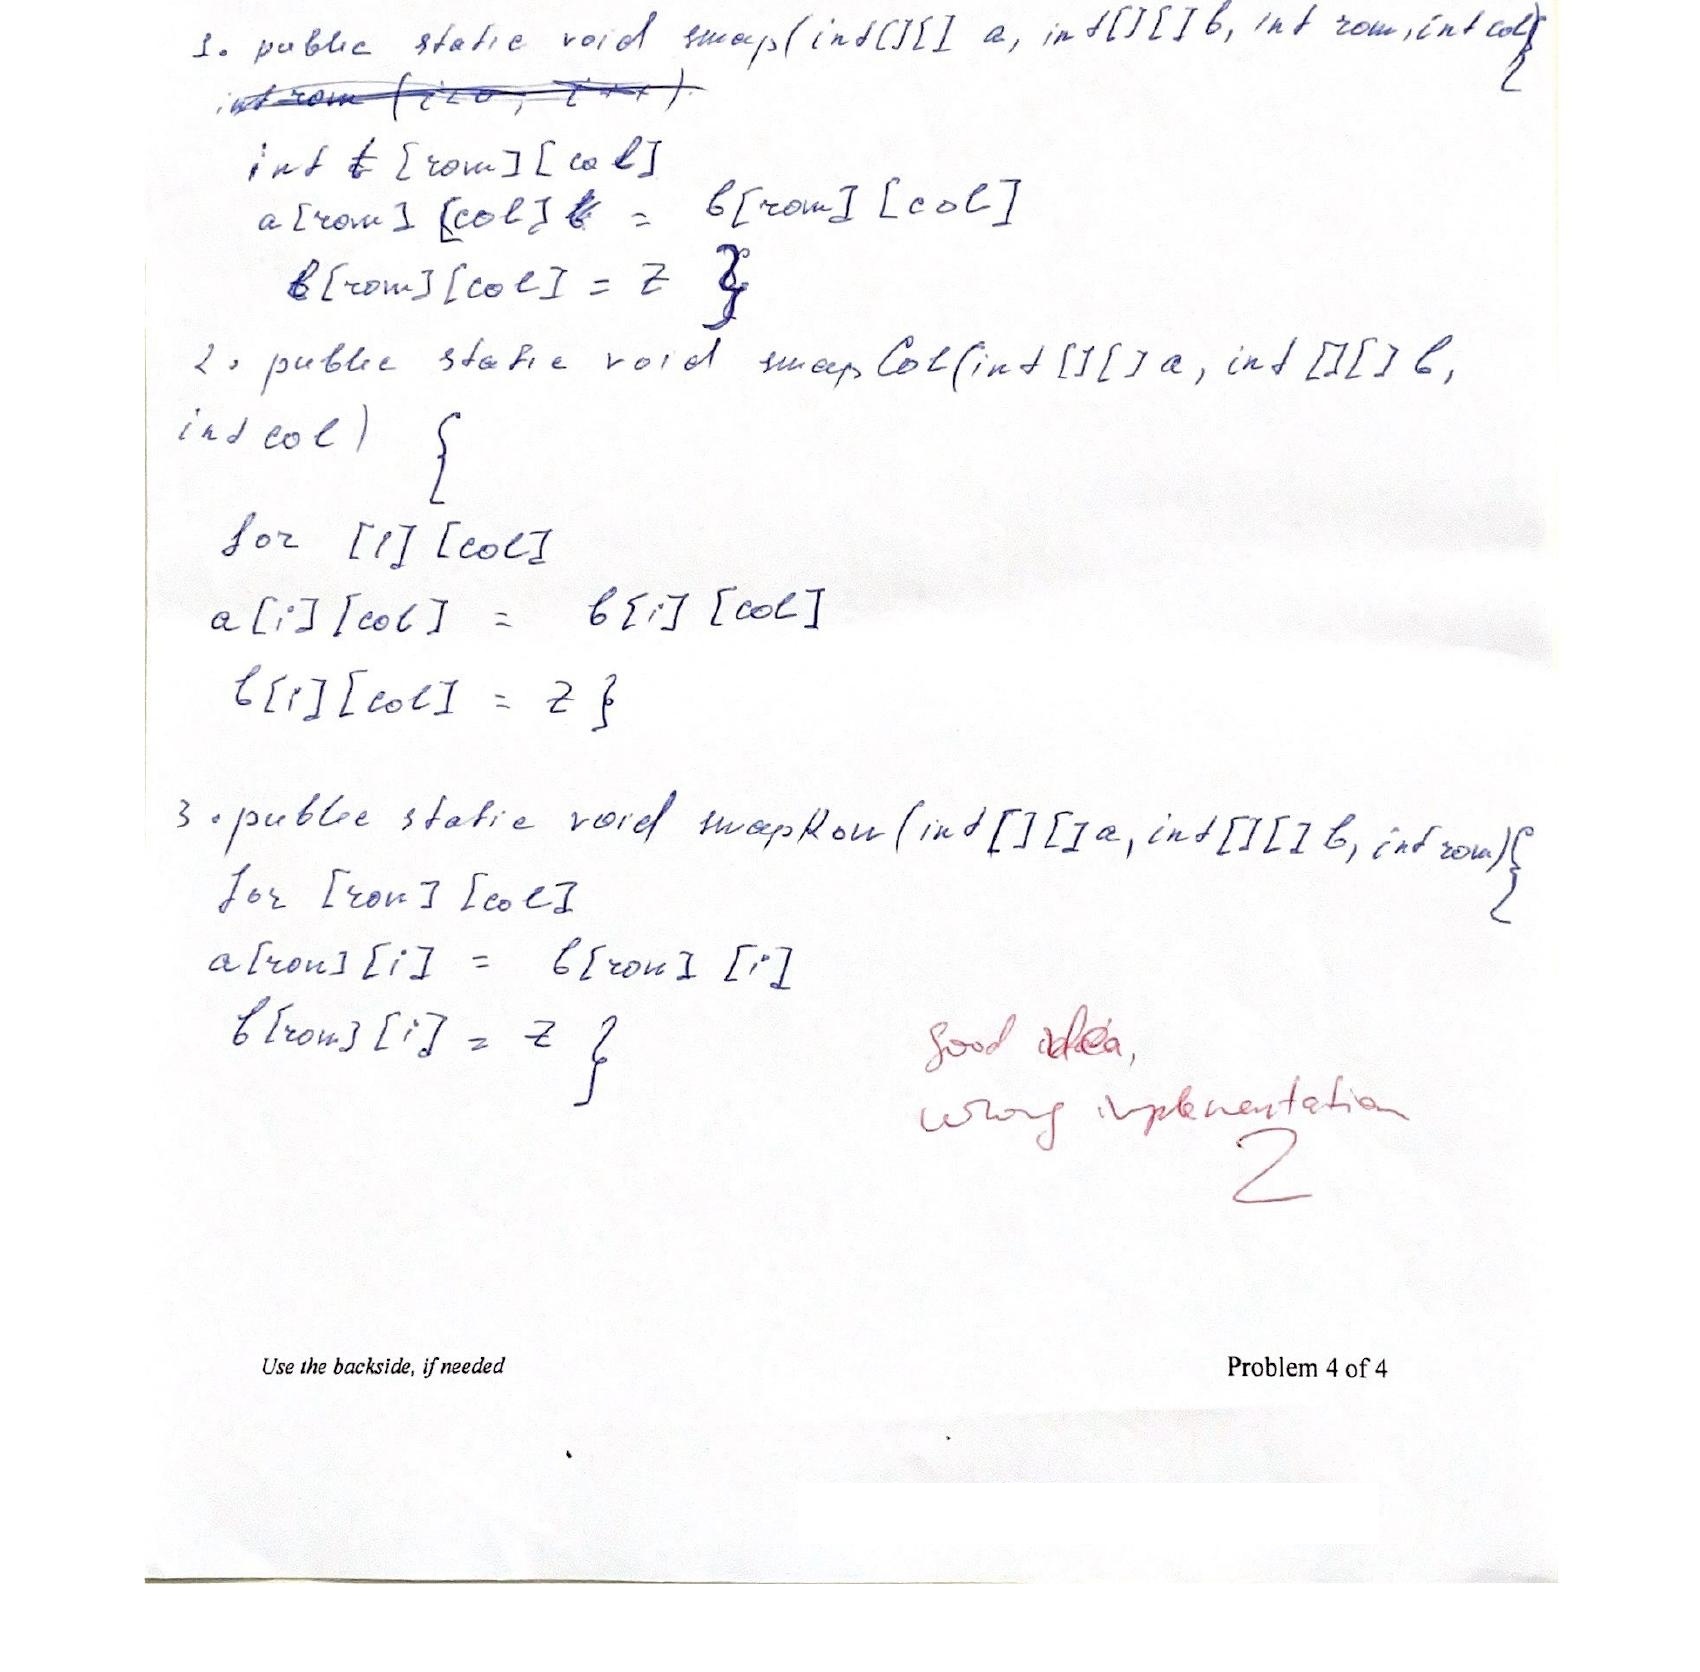 1. public static void swap(int[][] a, int[][] b, int row, int col) {
int row (i=0, i++).
int t [row][col]
a[row] [col] = b[row] [col]
b[row][col] = z }
2. public static void swapCol(int[][] a, int[][] b,
int col) {
for [i] [col]
a[i] [col] = b[i] [col]
b[i][col] = z }
3. public static void swapRow(int[][] a, int[][] b, int row) {
for [row] [col]
a[row] [i] = b[row] [i]
b[row] [i] = z }
good idea,
wrong implementation
2
Use the backside, if needed
Problem 4 of 4